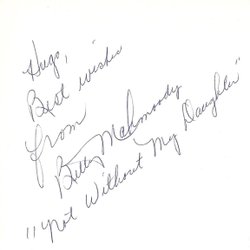 Hugo,
Best wishes
from
Betty Mahmoody
"Not Without My Daughter"